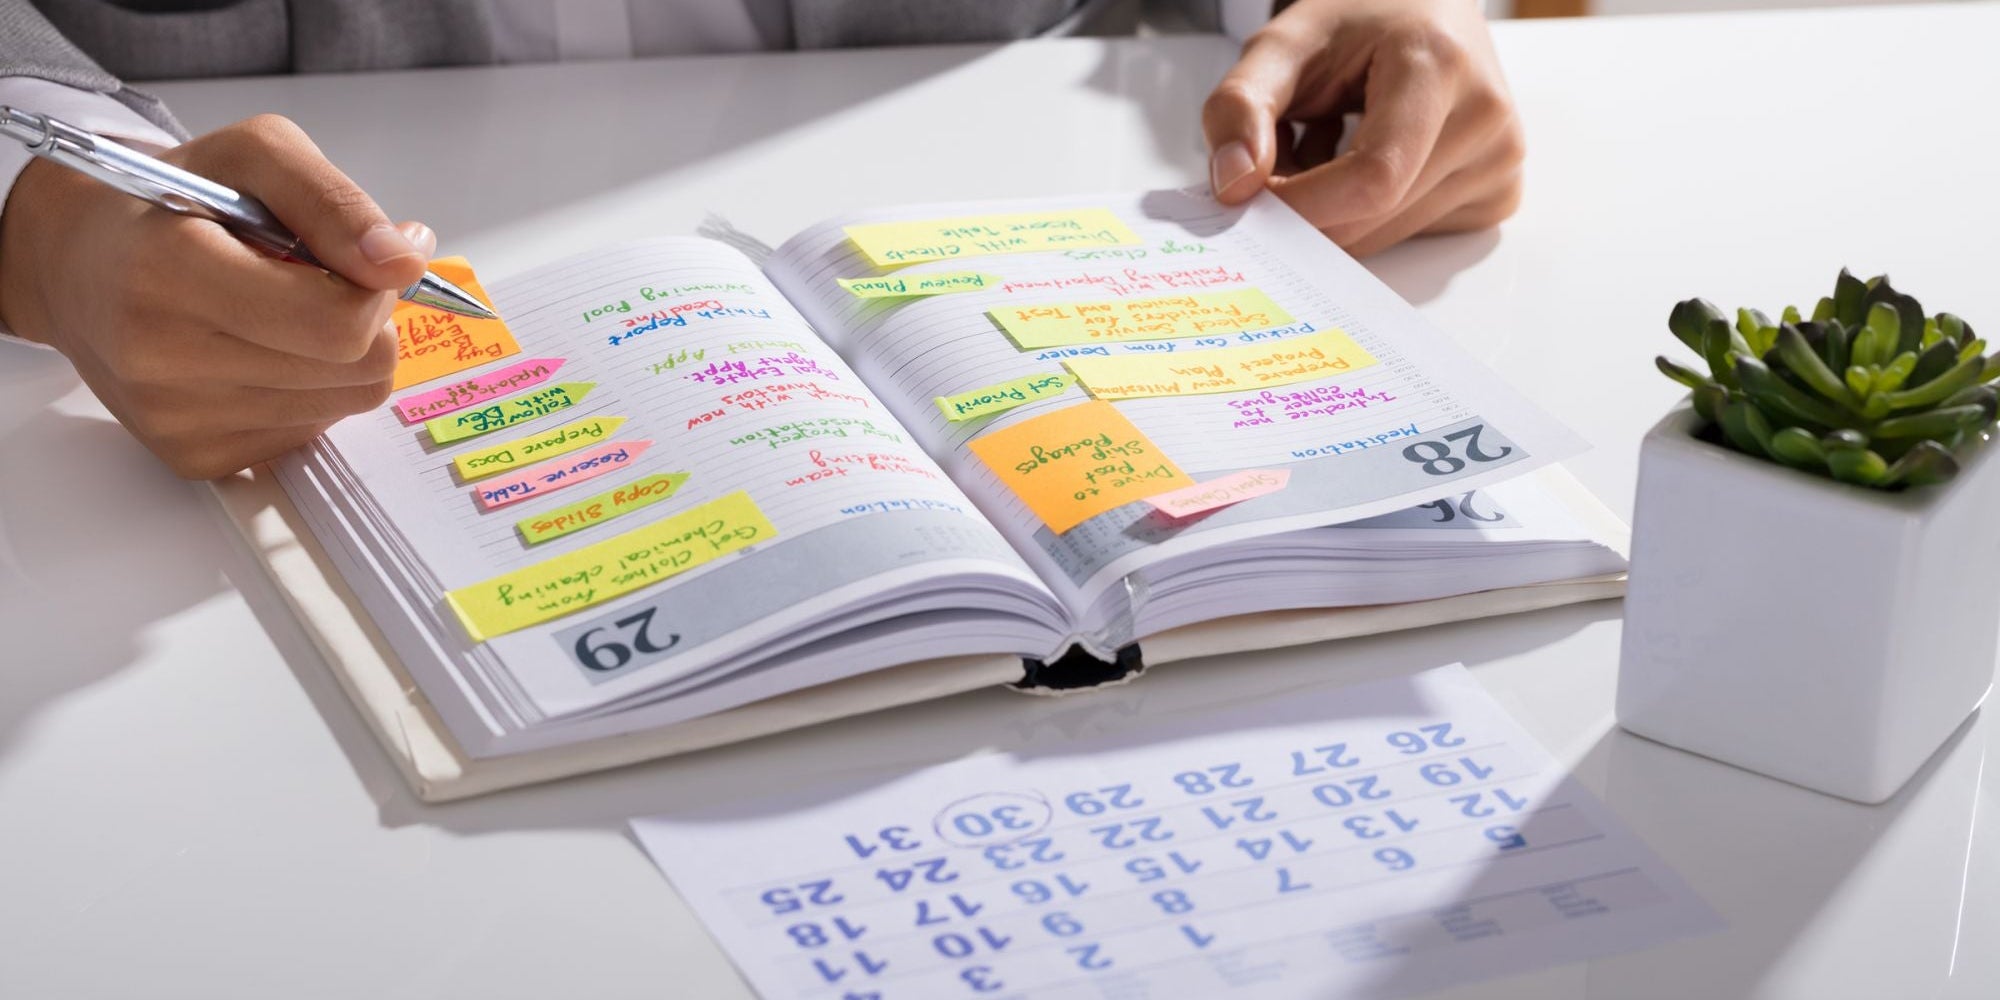 28
26
Meditation
Introduce new
Manager to
colleagues
Prepare new Milestone
Project Plan
Pickup Car from Dealer
Select Service
Providers for
Review and Test
Meeting with
Marketing Department
Yoga Classes
Dinner with Clients
Reserve Table
Sport Clothes
Drive to
Post
Ship
Packages
Set Priorit
Review Plans
29
Meditation
Weekly team
meeting
New Project
Presentation
Lunch with new
Investors
Real Estate
Agent Appt.
Dentist Appt.
Finish Report
Deadline
Swimming Pool
Get Clothes
from
Chemical cleaning
Copy Slides
Reserve Table
Prepare Docs
Follow up
with Dev
Update Charts
Buy
Bacon
Eggs
1 2 3 4
5 6 7 8 9 10 11
12 13 14 15 16 17 18
19 20 21 22 23 24 25
26 27 28 29 30 31